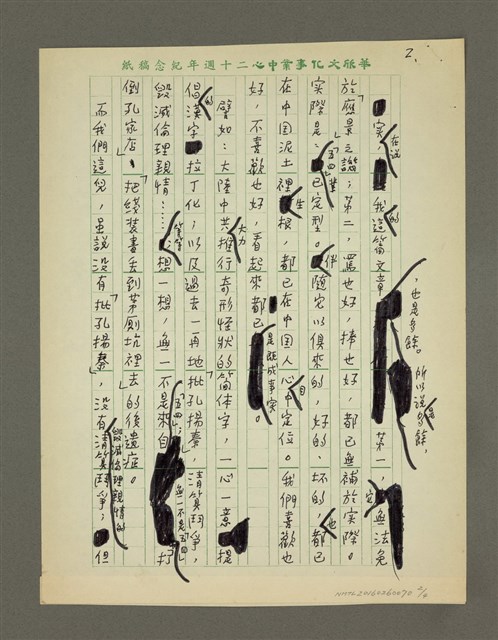 華欣文化事業中心二十週年紀念稿紙
2.
實，在說我這篇的文章，也是多餘。所以說是多餘，第一，它無法免
於「應景」之譏；第二，罵也好，捧也好，都已無補於實際。
實際是：「五四」業已定型。伴隨它以俱來的，好的、坏的，也都已
在中国泥土裡生根，都已在中国人心目中定位。我們喜歡也
好，不喜歡也好，看起來都已是既成事实。
譬如：大陸中共大力推行奇形怪狀的简体字，一心一意提
倡漢字的拉丁化；以及過去一再地「批孔揚秦」，清算鬥爭，
毀滅倫理親情……等等；想一想，無一不是來自「五四」；無一不是「五四」「打
倒孔家店」、「把綫裝書丢到茅厠坑裡去」的後遺症。
而我們這兒，虽說没有「批孔揚秦」，没有清算鬥爭；毀滅倫理親情的但
NMTL20160260070 2/8